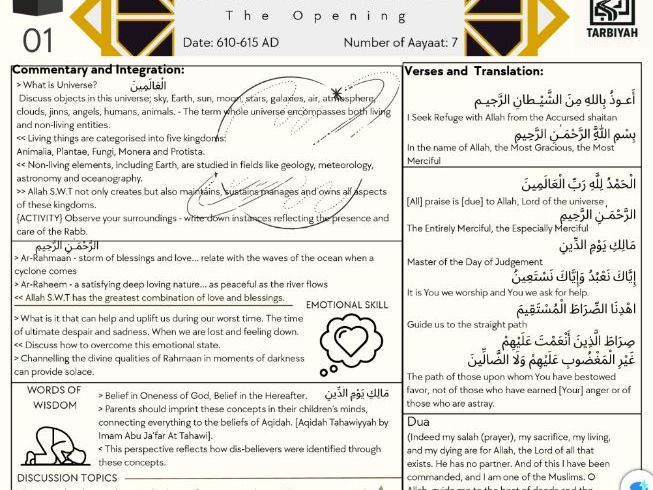 The Opening
01
Date: 610-615 AD
Number of Aayaat: 7
TARBIYAH
Commentary and Integration:
> What is Universe? الْعَالَمِينَ
Discuss objects in this universe; sky, Earth, sun, moon, stars, galaxies, air, atmosphere,
clouds, jinns, angels, humans, animals. - The term whole universe encompasses both living
and non-living entities.
<< Living things are categorised into five kingdoms:
Animalia, Plantae, Fungi, Monera and Protista.
<< Non-living elements, including Earth, are studied in fields like geology, meteorology,
astronomy and oceanography.
>> Allah S.W.T not only creates but also maintains, sustains manages and owns all aspects
of these kingdoms.
{ACTIVITY} Observe your surroundings - write down instances reflecting the presence and
care of the Rabb.
الرَّحْمَـٰنِ الرَّحِيمِ
> Ar-Rahmaan - storm of blessings and love... relate with the waves of the ocean when a
cyclone comes
> Ar-Raheem - a satisfying deep loving nature... as peaceful as the river flows
<< Allah S.W.T has the greatest combination of love and blessings.
EMOTIONAL SKILL
> What is it that can help and uplift us during our worst time. The time
of ultimate despair and sadness. When we are lost and feeling down.
<< Discuss how to overcome this emotional state.
> Channelling the divine qualities of Rahmaan in moments of darkness
can provide solace.
WORDS OF
WISDOM
> Belief in Oneness of God, Belief in the Hereafter. مَالِكِ يَوْمِ الدِّينِ
> Parents should imprint these concepts in their children's minds,
connecting everything to the beliefs of Aqidah. [Aqidah Tahawiyyah by
Imam Abu Ja'far At Tahawi].
< This perspective reflects how dis-believers were identified through
these concepts.
DISCUSSION TOPICS
Verses and Translation:
أَعـوذُ بِاللهِ مِنَ الشَّيْـطانِ الرَّجيـم
I Seek Refuge with Allah from the Accursed shaitan
بِسْمِ اللَّهِ الرَّحْمَـٰنِ الرَّحِيمِ
In the name of Allah, the Most Gracious, the Most
Merciful
الْحَمْدُ لِلَّهِ رَبِّ الْعَالَمِينَ
[All] praise is [due] to Allah, Lord of the universe
الرَّحْمَـٰنِ الرَّحِيمِ
The Entirely Merciful, the Especially Merciful
مَالِكِ يَوْمِ الدِّينِ
Master of the Day of Judgement
إِيَّاكَ نَعْبُدُ وَإِيَّاكَ نَسْتَعِينُ
It is You we worship and You we ask for help.
اهْدِنَا الصِّرَاطَ الْمُسْتَقِيمَ
Guide us to the straight path
صِرَاطَ الَّذِينَ أَنْعَمْتَ عَلَيْهِمْ
غَيْرِ الْمَغْضُوبِ عَلَيْهِمْ وَلَا الضَّالِّينَ
The path of those upon whom You have bestowed
favor, not of those who have earned [Your] anger or of
those who are astray.
Dua
(Indeed my salah (prayer), my sacrifice, my living,
and my dying are for Allah, the Lord of all that
exists. He has no partner. And of this I have been
commanded, and I am one of the Muslims. O